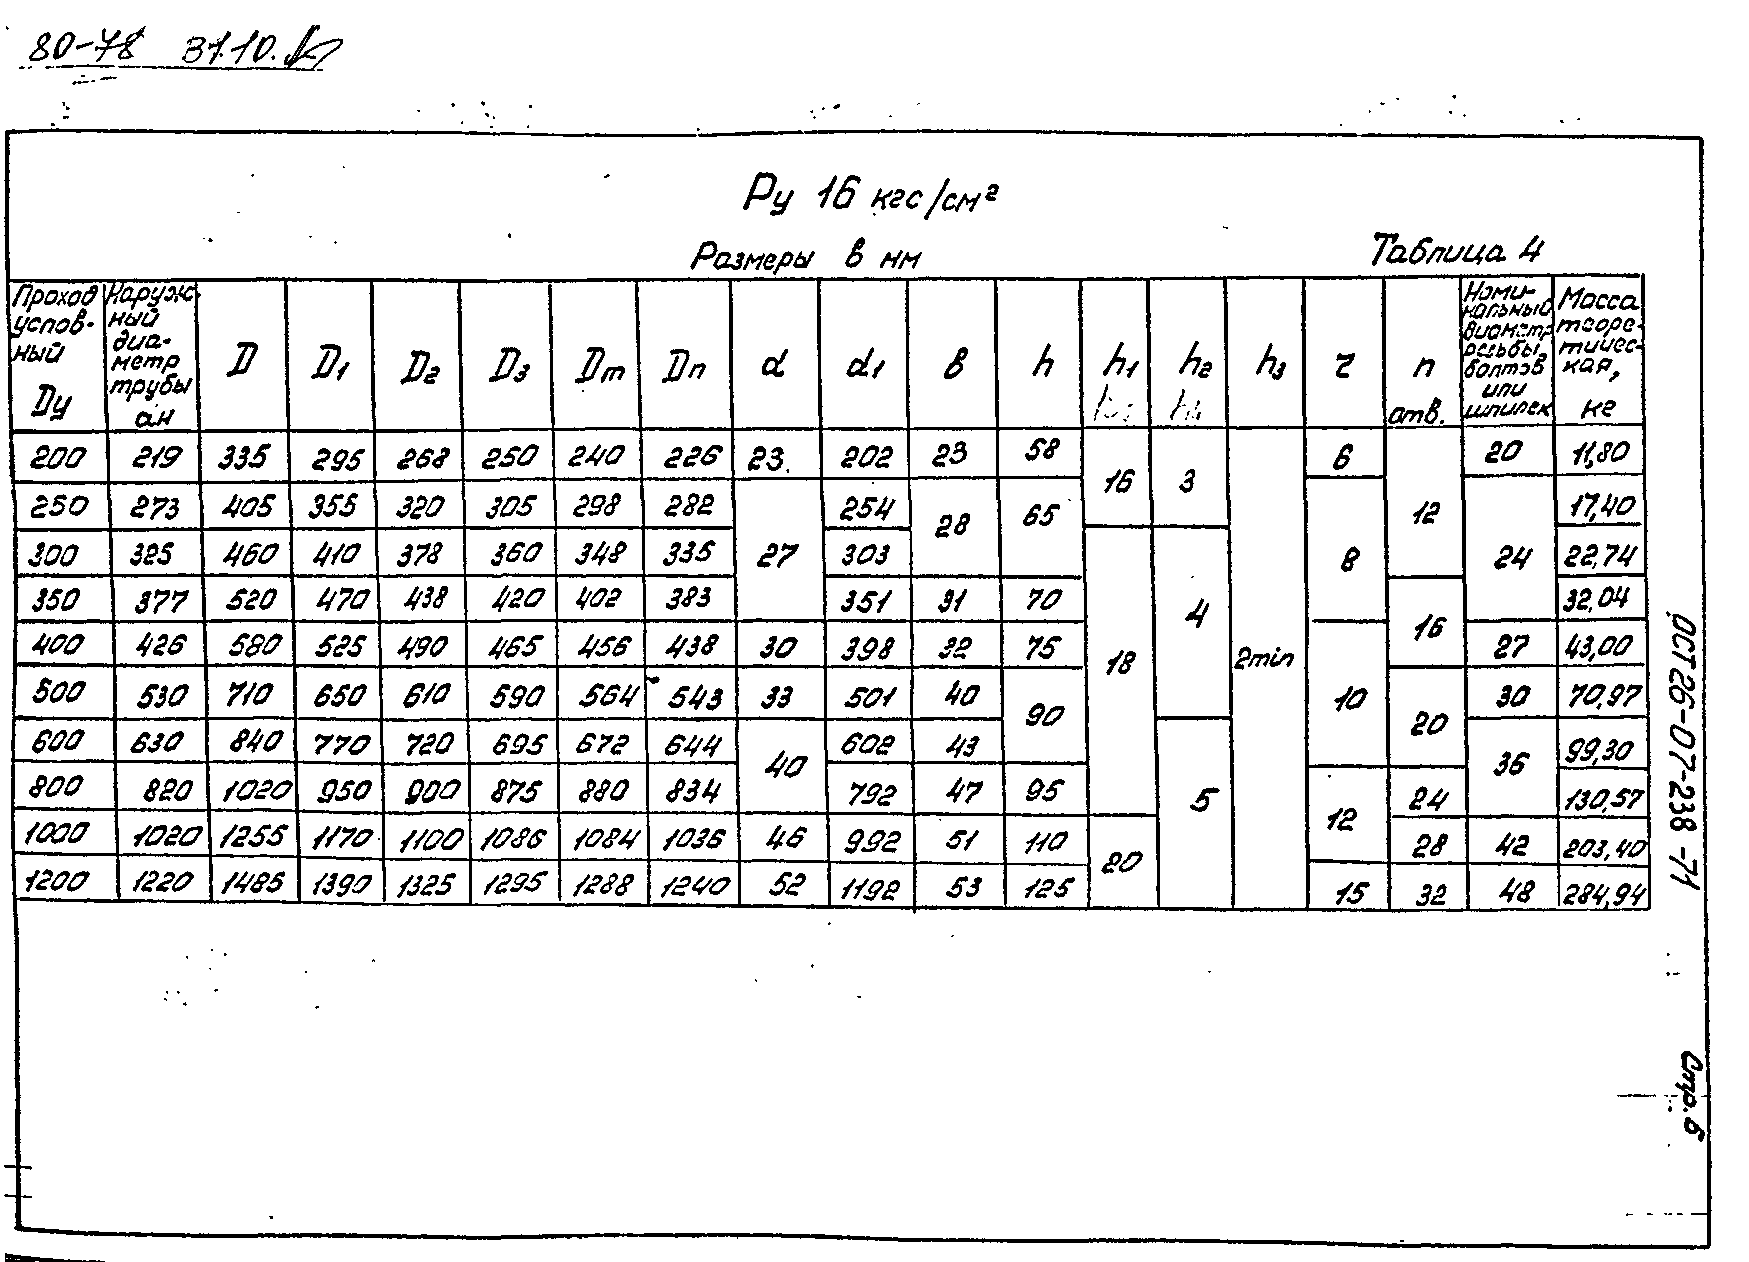 80-78 31.10.
Ру 16 кгс/см²
Размеры в мм
Таблица 4
Проход условный Dу | Наружный диаметр трубы дн | D | D1 | D2 | D3 | Dm | Dп | d | d1 | в | h | h1 | h2 | h3 | r | n отв. | Номинальный диаметр резьбы болтов или шпилек | Масса теоретическая, кг
200 219 335 295 268 250 240 226 23 202 23 58 16 3 2min 6 12 20 11,80
250 273 405 355 320 305 298 282 27 254 28 65 8 24 17,40
300 325 460 410 378 360 348 335 303 18 4 22,74
350 377 520 470 438 420 402 383 351 31 70 16 32,04
400 426 580 525 490 465 456 438 30 398 32 75 10 27 43,00
500 530 710 650 610 590 564 543 33 501 40 90 20 30 70,97
600 630 840 770 720 695 672 644 40 602 43 5 36 99,30
800 820 1020 950 900 875 880 834 792 47 95 12 24 130,57
1000 1020 1255 1170 1100 1086 1084 1036 46 992 51 110 20 28 42 203,40
1200 1220 1485 1390 1325 1295 1288 1240 52 1192 53 125 15 32 48 284,94
ОСТ 26-07-238-71
Стр. 6